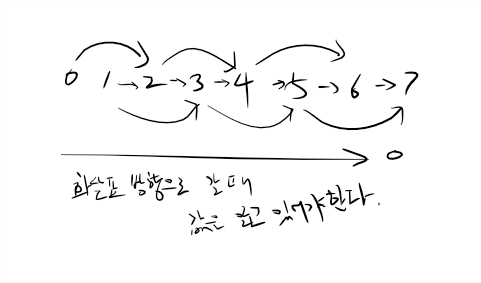 0 1 → 2 → 3 → 4 → 5 → 6 → 7
0
화살표 방향으로 갈때
값은 들고 있어야한다.